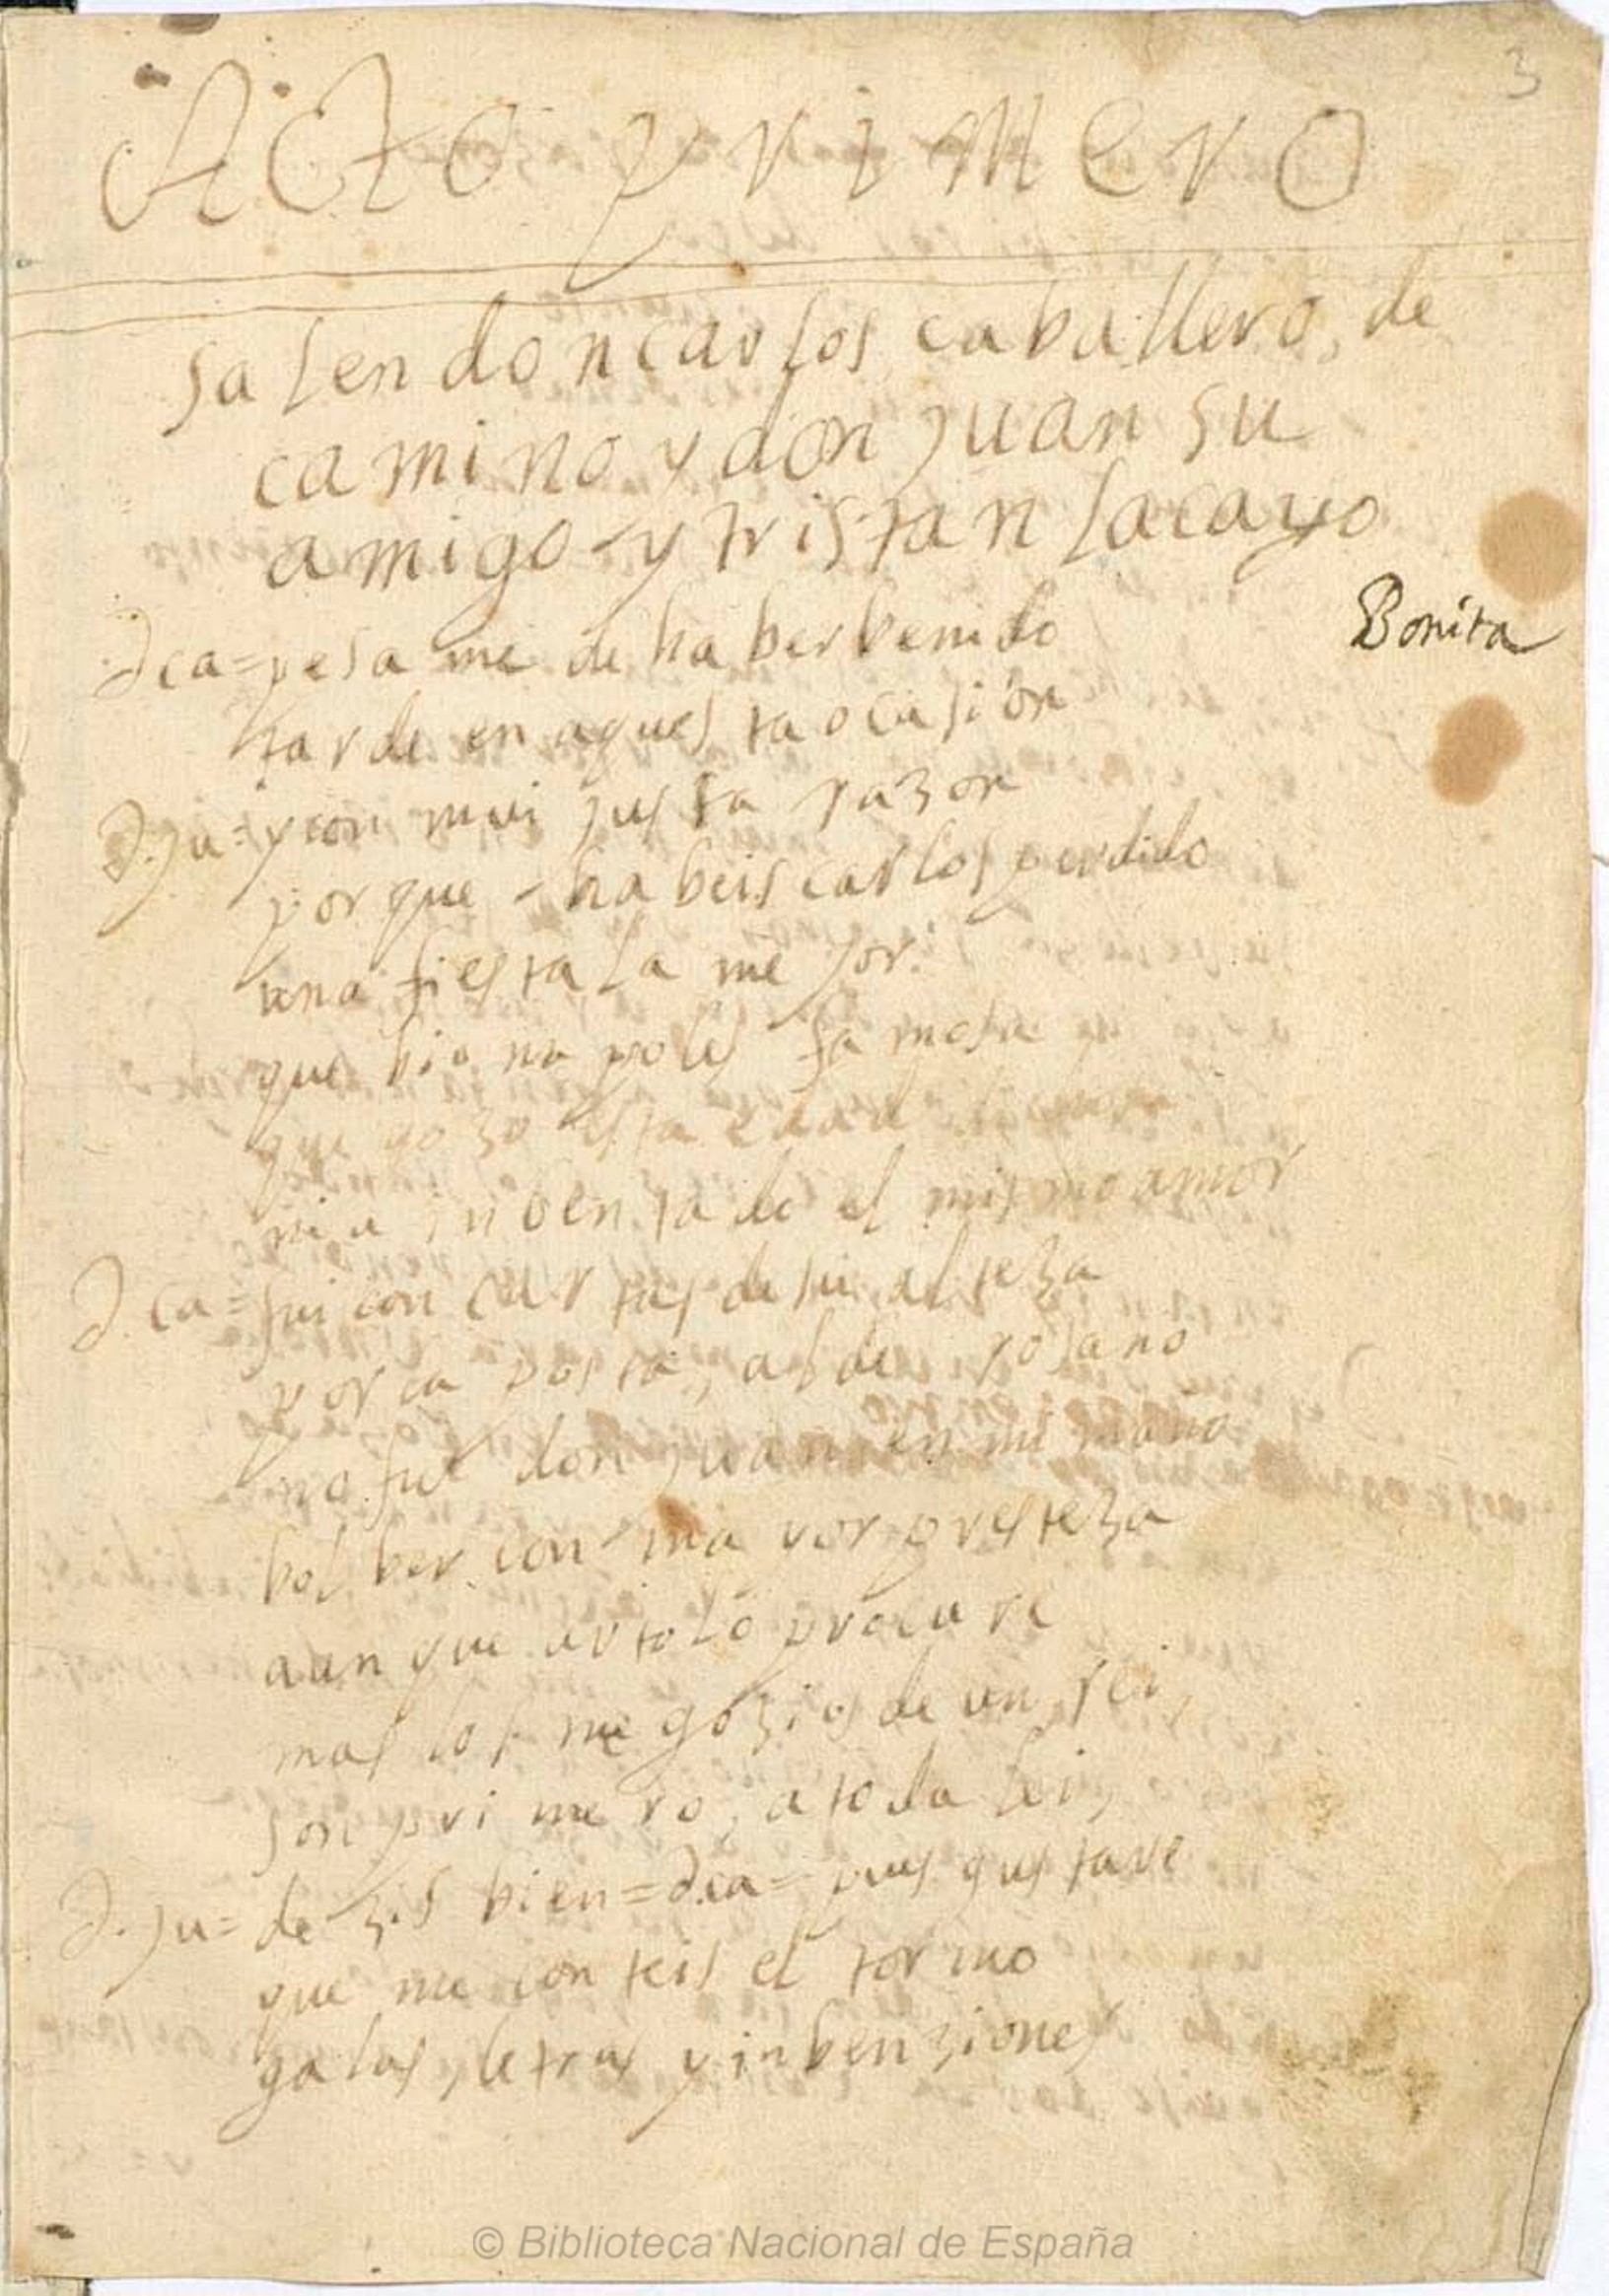 3
Acto primero
salen don carlos caballero, de
camino y don juan su
amigo - y tristan lacayo
Bonita
d ca = pesa me de haber benido
tarde en aquesta ocasion
d. ju = y con mui justa razon
porque - habeis carlos perdido
una fiesta la mejor
que bio napoles famosa
que gozo esta edad
ni a inbentado el mismo amor
d. ca = fui con cartas de su alteza
por la posta, al de rosano
no fue don juan en mi mano
bolber con mayor presteza
aunque arto lo procure
mas los negozios de un rei,
son primero, a toda lei,
d. ju = dezis bien = d. ca = pues gustare
que me conteis el torneo
galas, letras y inbenziones
© Biblioteca Nacional de España